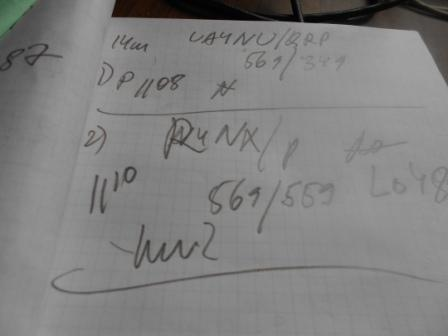 87
14m UA4NU/QRP
569/349
1) P 1108
2) R4NX/p
1110 569/559 LO48